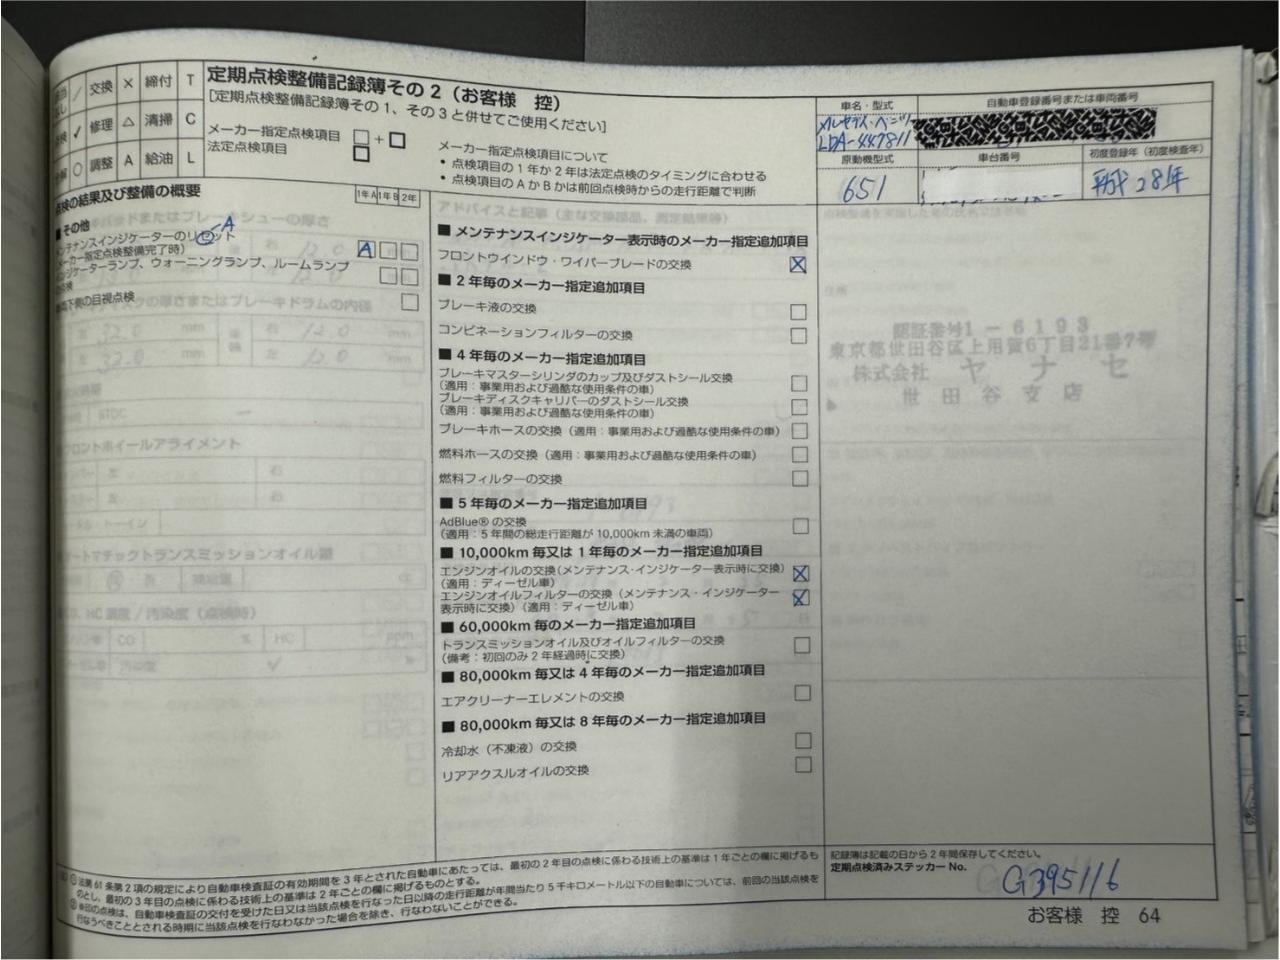 交換 × 締付 T
修理 △ 清掃 C
○ 調整 A 給油 L
定期点検整備記録簿その2（お客様 控）
[定期点検整備記録簿その1、その3と併せてご使用ください]
メーカー指定点検項目 □+□
法定点検項目 □
メーカー指定点検項目について
• 点検項目の1年か2年は法定点検のタイミングに合わせる
• 点検項目のAかBかは前回点検時からの走行距離で判断
車名・型式
メルセデス・ベンツ
LDA-447811
自動車登録番号または車両番号
原動機型式
651
車台番号
初度登録年（初度検査年）
平成28年
点検の結果及び整備の概要
1年A 1年B 2年
■ その他
メンテナンスインジケーターのリセット
A
メーカー指定点検整備完了時）
A
インジケーターランプ、ウォーニングランプ、ルームランプ
の点検
下側の目視点検
■ メンテナンスインジケーター表示時のメーカー指定追加項目
フロントウインドウ・ワイパーブレードの交換 ×
■ 2年毎のメーカー指定追加項目
ブレーキ液の交換
コンビネーションフィルターの交換
■ 4年毎のメーカー指定追加項目
ブレーキマスターシリンダのカップ及びダストシール交換
（適用：事業用および過酷な使用条件の車）
ブレーキディスクキャリパーのダストシール交換
（適用：事業用および過酷な使用条件の車）
ブレーキホースの交換（適用：事業用および過酷な使用条件の車）
燃料ホースの交換（適用：事業用および過酷な使用条件の車）
燃料フィルターの交換
■ 5年毎のメーカー指定追加項目
AdBlue® の交換
（適用：5年間の総走行距離が10,000km未満の車両）
■ 10,000km毎又は1年毎のメーカー指定追加項目
エンジンオイルの交換（メンテナンス・インジケーター表示時に交換）
（適用：ディーゼル車） ×
エンジンオイルフィルターの交換（メンテナンス・インジケーター
表示時に交換）（適用：ディーゼル車） ×
■ 60,000km毎のメーカー指定追加項目
トランスミッションオイル及びオイルフィルターの交換
（備考：初回のみ2年経過時に交換）
■ 80,000km毎又は4年毎のメーカー指定追加項目
エアクリーナーエレメントの交換
■ 80,000km毎又は8年毎のメーカー指定追加項目
冷却水（不凍液）の交換
リアアクスルオイルの交換
認証番号1-6193
東京都世田谷区上用賀6丁目21番7号
株式会社 ヤナセ
世田谷支店
① 法第61条第2項の規定により自動車検査証の有効期間を3年とされた自動車にあたっては、最初の2年目の点検に係わる技術上の基準は1年ごとの欄に掲げるも
のとし、最初の3年目の点検に係わる技術上の基準は2年ごとの欄に掲げるものとする。
② ※印の点検は、自動車検査証の交付を受けた日又は当該点検を行なった日以降の走行距離が年間当たり5千キロメートル以下の自動車については、前回の当該点検を
行なうべきこととされる時期に当該点検を行なわなかった場合を除き、行なわないことができる。
記録簿は記載の日から2年間保存してください。
定期点検済みステッカー No.
G395116
お客様 控 64